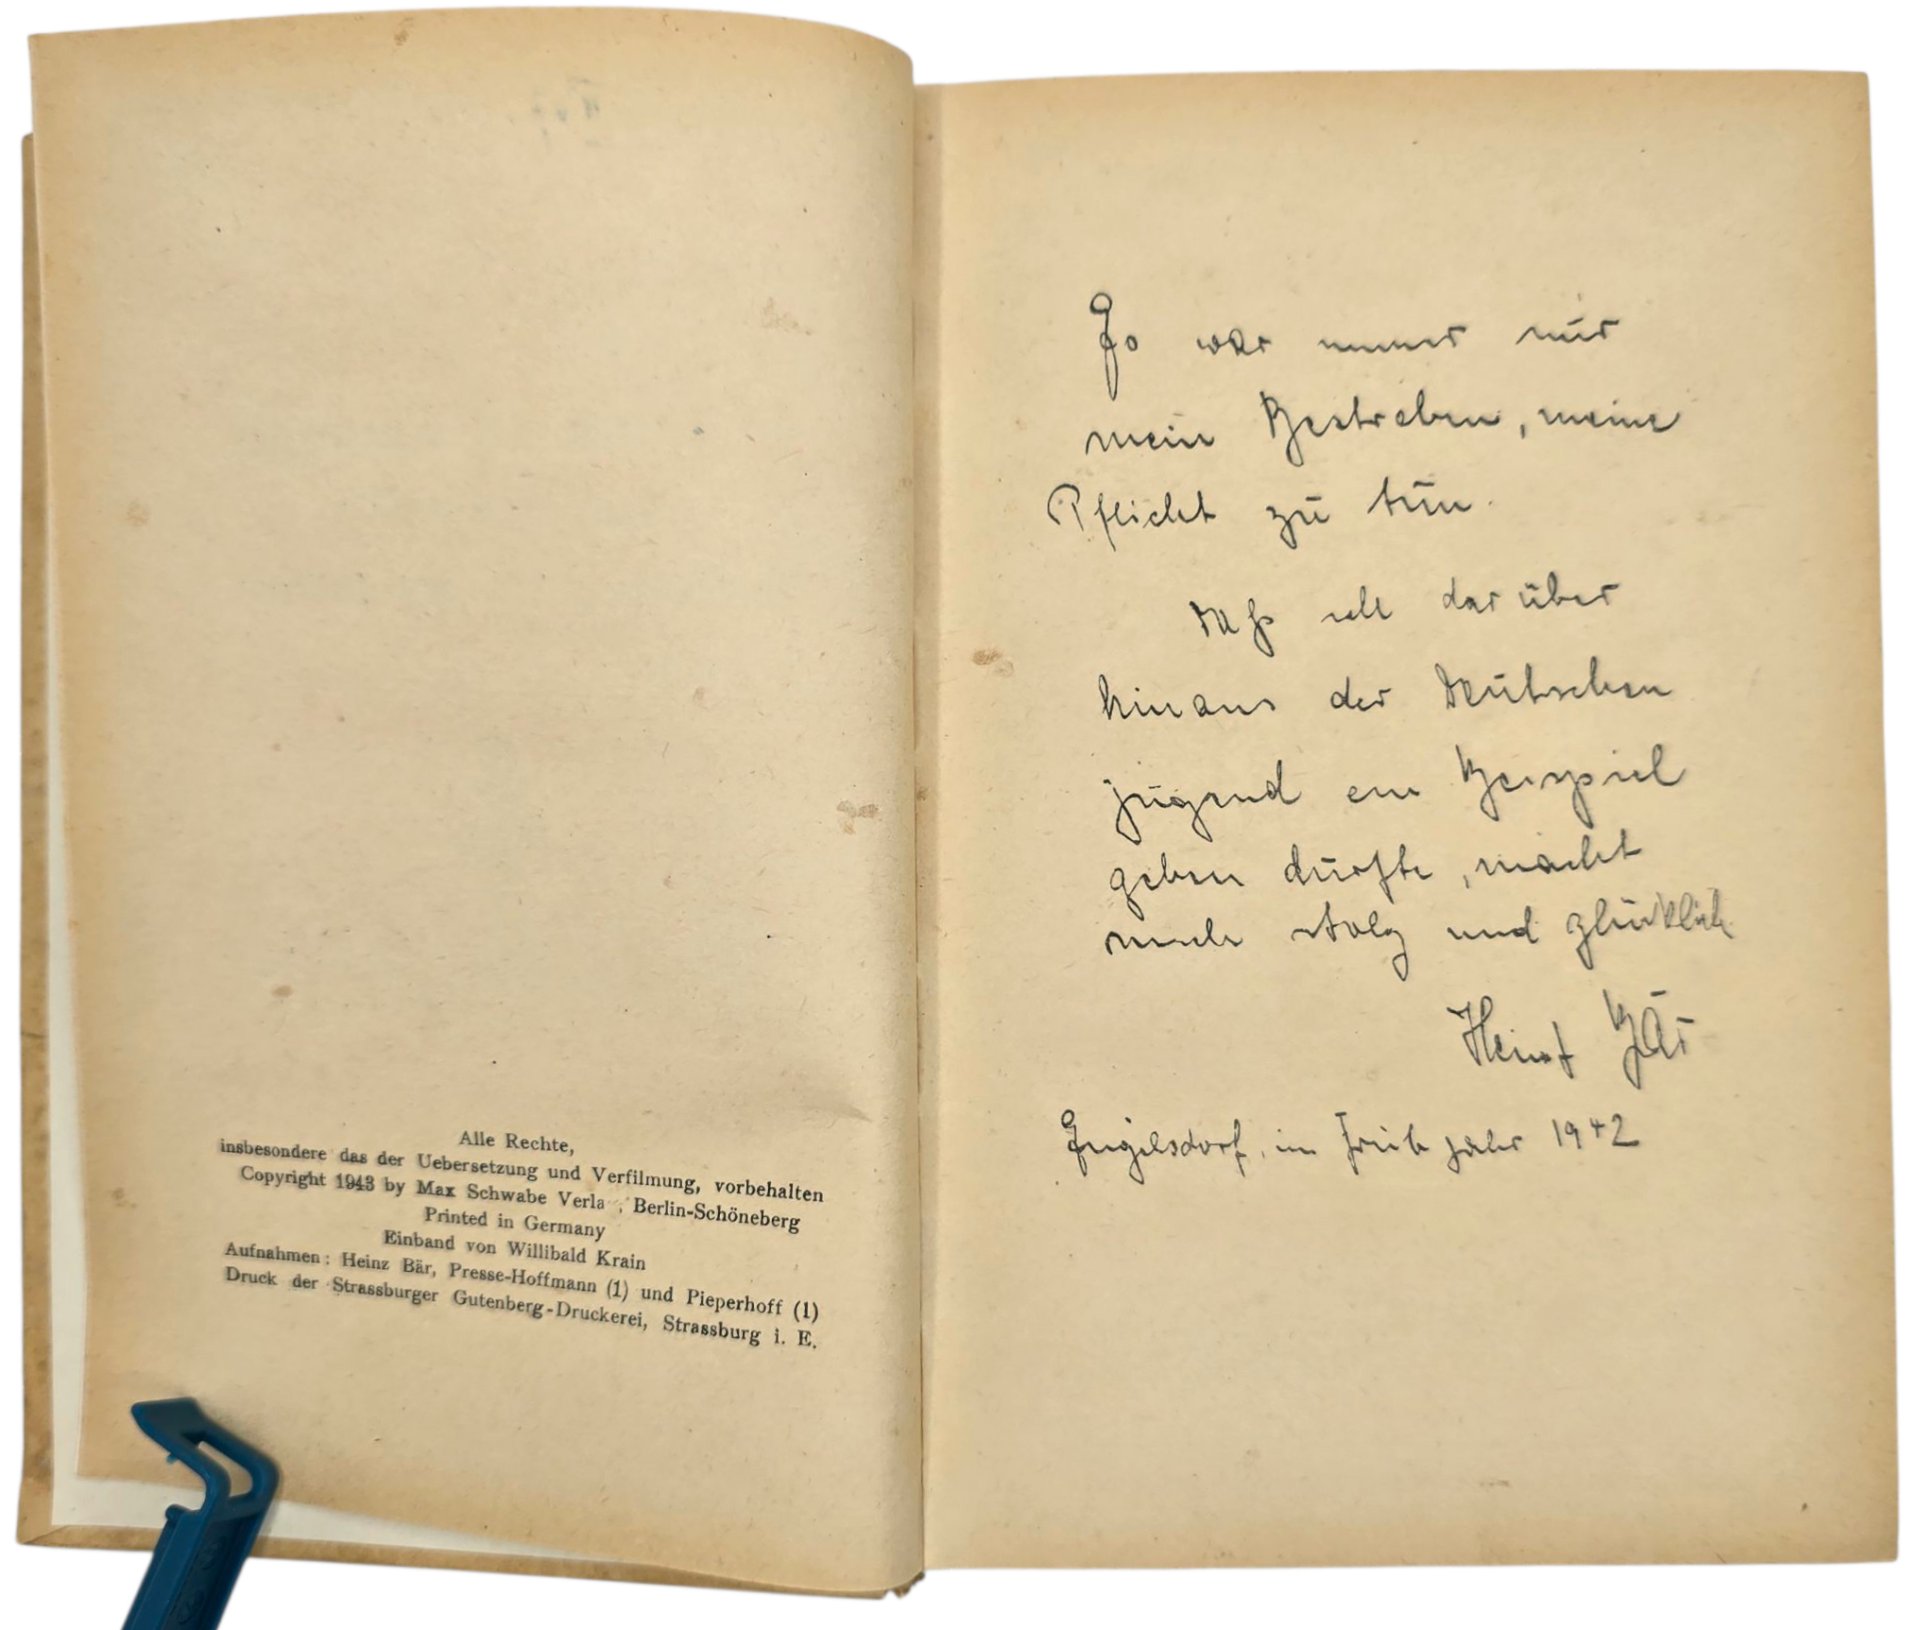 Alle Rechte,
insbesondere das der Uebersetzung und Verfilmung, vorbehalten
Copyright 1943 by Max Schwabe Verla , Berlin-Schöneberg
Printed in Germany
Einband von Willibald Krain
Aufnahmen: Heinz Bär, Presse-Hoffmann (1) und Pieperhoff (1)
Druck der Strassburger Gutenberg-Druckerei, Strassburg i. E.
Es war immer nur
mein Bestreben, meine
Pflicht zu tun.
Daß ich darüber
hinaus der Deutschen
Jugend ein Beispiel
geben durfte, macht
mich stolz und glücklich
Heinz Bär
Engelsdorf, im Frühjahr 1942